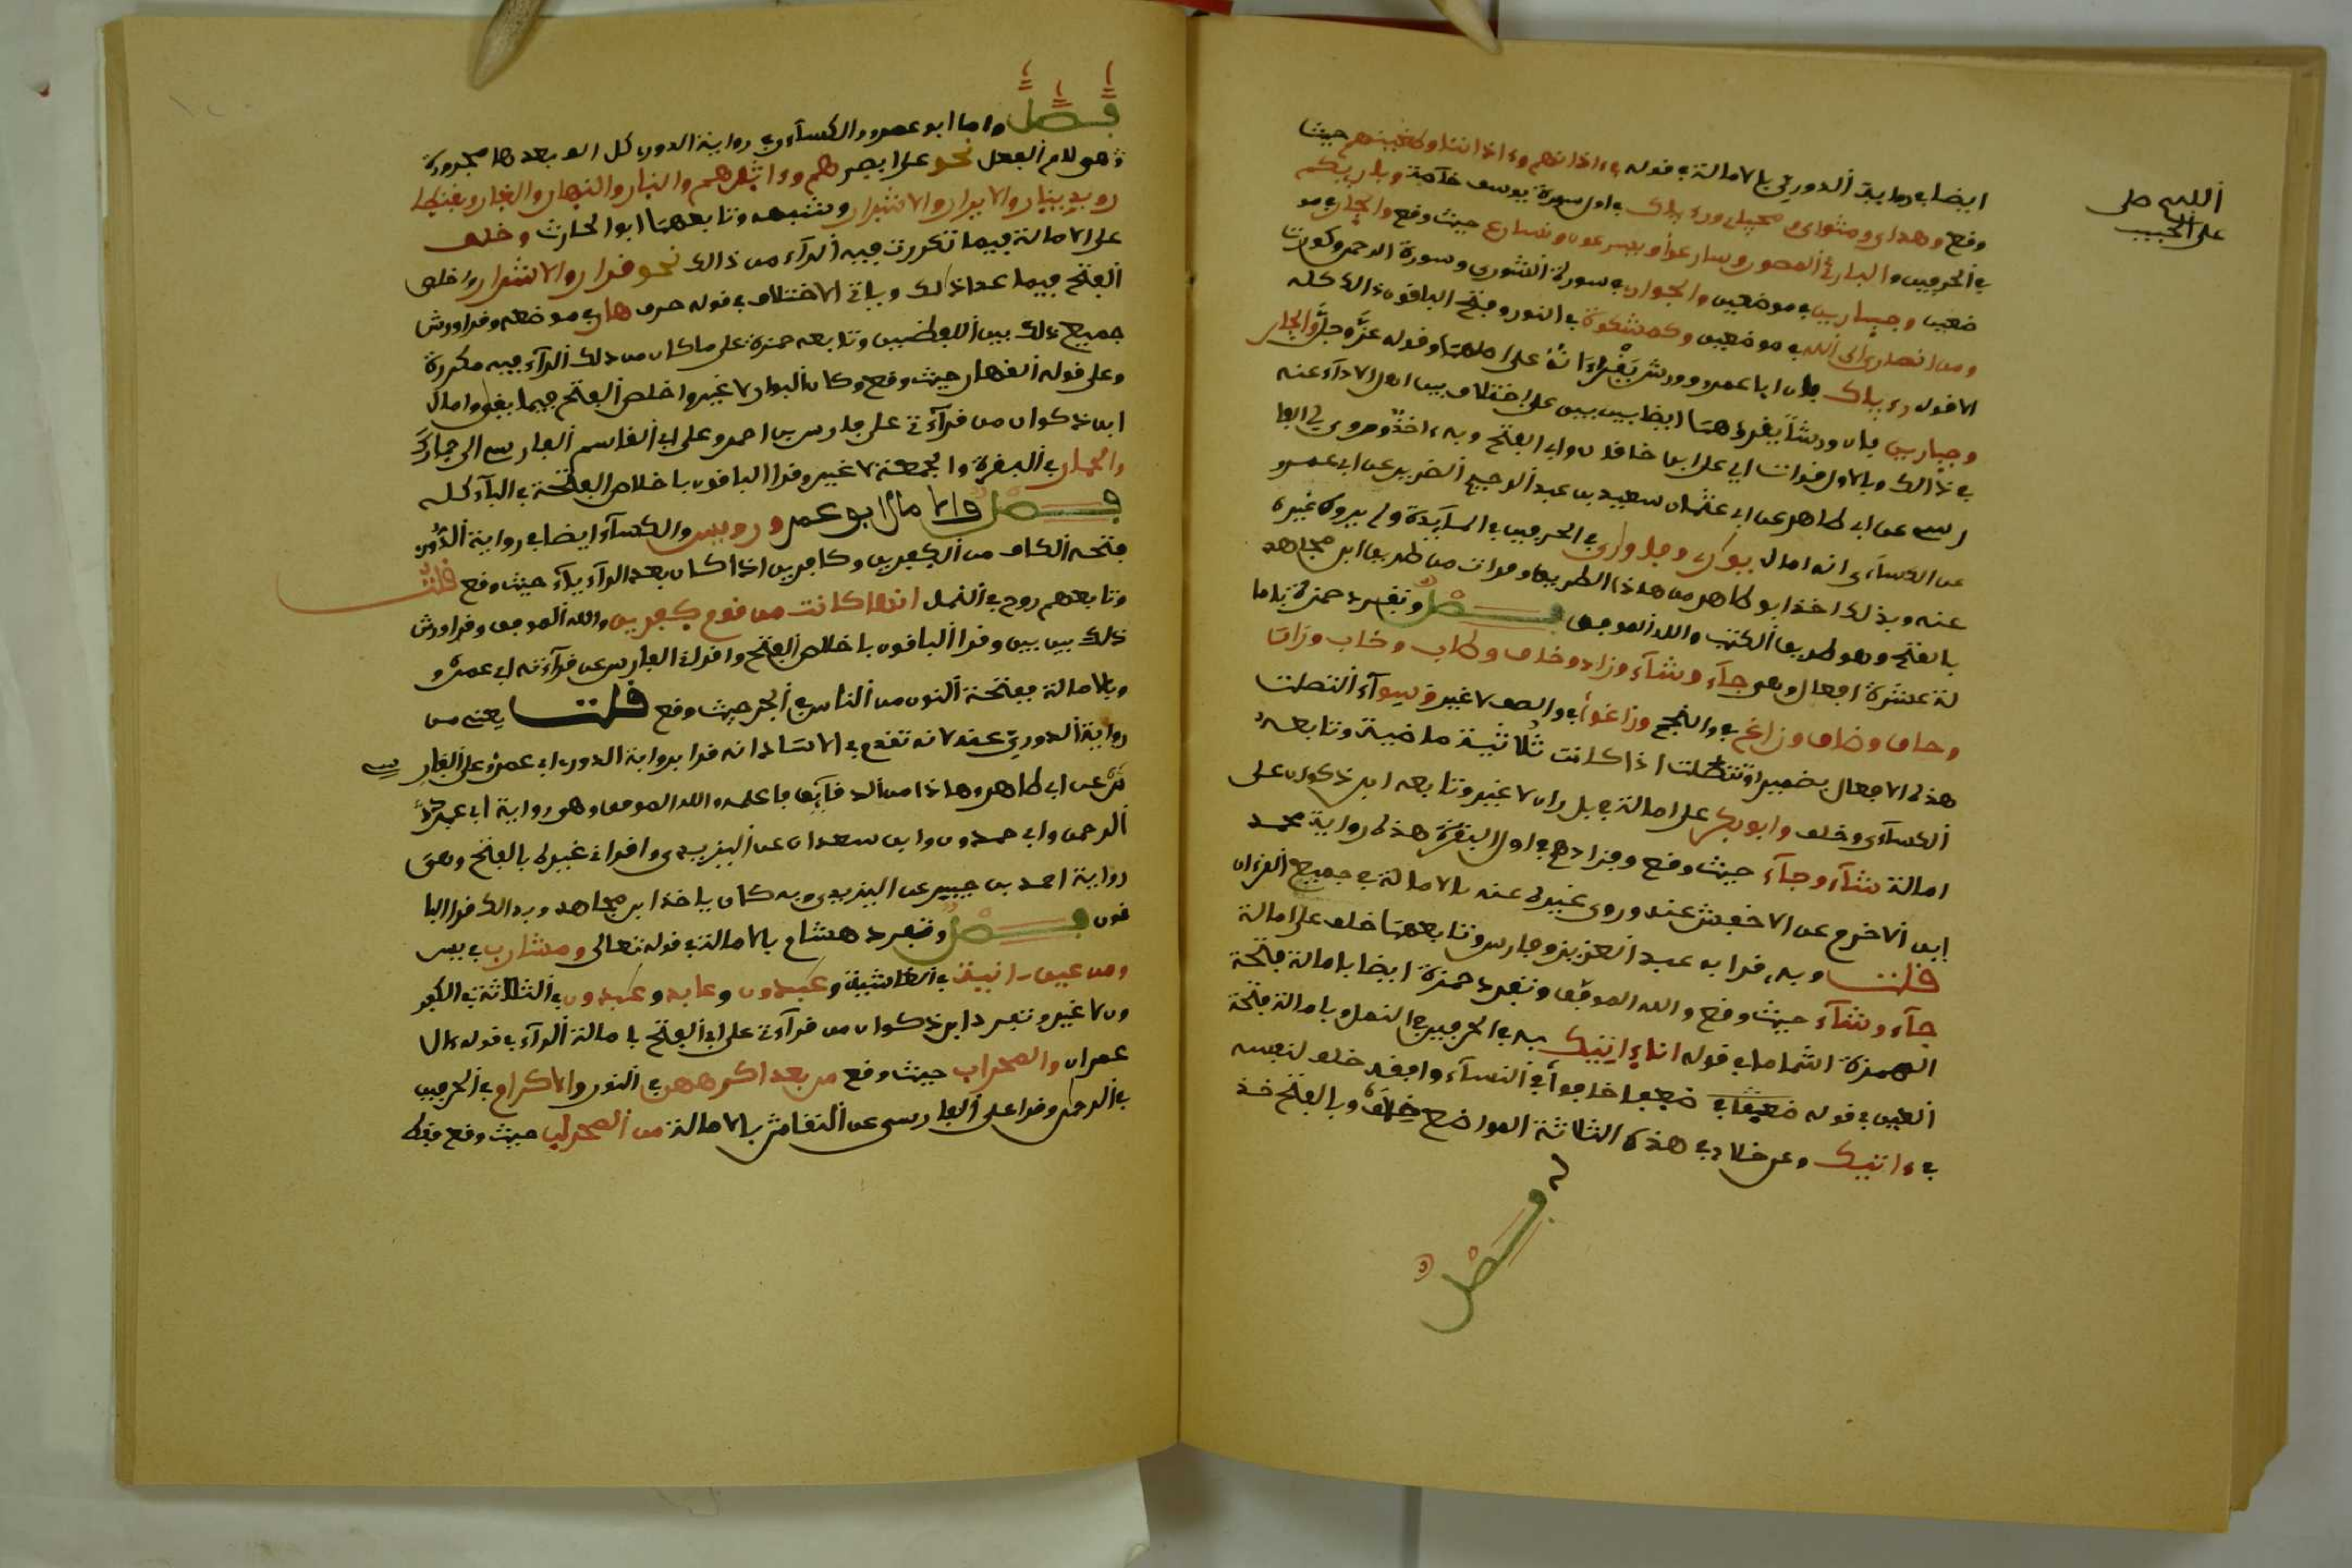 اللهم صل
على الحبيب
ايضا في رواية الدوري بالامالة في قوله ءاذانهم وءاذاننا وطغينهم حيث
وقع وهداي ومثواي ومحياي ورءياك في اول سورة يوسف خآصة وبارئكم
في الحرفين والبارئ المصور وسارعوا ويسرعون ونسارع حيث وقع والجار في مو
ضعين وجبارين في موضعين والجوار في سورة الشورى وسورة الرحمن وكورت
ومن انصاري الى الله في موضعين وكمشكوة في النور وفتح الباقون ذالك كله
الا قوله رءياك فان ابا عمرو وورش يقرءانه على اصلهما وقوله عز وجل والجار
وجبارين فان ورشا يقرءهما ايضا بين بين على اختلاف بين اهل الاداء عنه
في ذالك وبالاول قرات على ابن خاقان وابي الفتح وبه ءاخذ وروى لي الفا
رسي عن ابي طاهر عن ابي عثمان سعيد بن عبد الرحيم الضرير عن ابي عمر
عن الكسآءي انه امال يواري وفاواري في الحرفين في المآيدة ولم يروه غيره
عنه وبذلك اخذ ابو طاهر من هاذا الطريق وقرات من طريق ابن مجاهد
بالفتح وهو طريق الكتب والله الموفق فصل وتفرد حمزة باما
لة عشرة افعال وهي جآء وشآء وزاد وخاف وطاب وخاب وزاق
وحاق وضاق وزاغ في والنجم وزاغوا في والصف لا غير وسوآء اتصلت
هذه الافعال بضمير او لم تتصل اذا كانت ثلاثية ماضية وتابعه
الكسآءي وخلف وابو بكر على امالة بل ران لا غير وتابعه ابن ذكوان على
امالة شآء وجآء حيث وقع وفزادهم في اول البقرة هذه رواية محمد
ابن الاخرم عن الاخفش عنه وروى غيره عنه بالامالة في جميع القرءان
قلت وبه قرا به عبد العزيز وفارس وتابعهما خلف على امالة
جآء وشآء حيث وقع والله الموفق وتفرد حمزة ايضا بامالة فتحة
الهمزة اشماما في قوله انا ءاتيك به في الحرفين في النمل وبامالة فتحة
العين في قوله ضعفا خافوا في النسآء وافقه خلف لنفسه
في ءاتيك وعن خلاد في هذه الثلاثة المواضع خلاف وبالفتح خذ
له
فصل
فصل واما ابو عمرو والكسآءي في رواية الدوري كل الف بعدها را مجرورة
وهي لام الفعل نحو على ابصرهم وءاثرهم والنار والنهار والغار وبقنطار
وبدينار والابرار والاشرار وشبهه وتابعهما ابو الحارث وخلف
على الامالة فيما تكررت فيه الرآء من ذالك نحو قرار والاشرار واخلص
الفتح فيما عدا ذلك وياتي الاختلاف في قوله جرف هار في موضعه وقرا ورش
جميع ذلك بين اللفظين وتابعه حمزة على ما كان من ذلك الرآء فيه مكررة
وعلى قوله القهار حيث وقع وكان البوار لا غير واخلص الفتح فيما بقي وامال
ابن ذكوان من قرآءتي على فارس بن احمد وعلى ابي القاسم الفارسي الى حمارك
والحمار في البقرة والجمعة لا غير وقرا الباقون باخلاص الفتحة في الباب كله
فصل وامال ابو عمرو ورويس والكسآءي ايضا في رواية الدوري
فتحة الكاف من الكفرين وكافرين اذا كان بعد الرآء يآء حيث وقع قلت
وتابعهم روح في النمل انها كانت من قوم كفرين والله الموفق وقرا ورش
ذلك بين بين وقرا الباقون باخلاص الفتح واقراني الفارسي عن قرآءته لابي عمرو
وبالامالة بفتحة النون من الناس في الجر حيث وقع قلت يعني من
رواية الدوري عنه لانه تقدم في الاسناد انه قرا برواية الدوري ابي عمرو على الفارسي
عن ابي طاهر وهاذا من الدقآيق فاعلمه والله الموفق وهي رواية ابي عبد
الرحمن وابي حمدون وابن سعدان عن اليزيدي واقراني غيره بالفتح وهي
رواية احمد بن جبير عن اليزيدي وبه كان ياخذ ابن مجاهد وبذالك قرا البا
قون فصل وتفرد هشام بالامالة في قوله تعالى ومشارب في يس
ومن عين ءانية في الغاشية وعبدون وعابد وعبدون في الثلاثة في الكفر
ون لا غير وتفرد ابن ذكوان من قرآءتي على ابي الفتح بامالة الرآء في قوله ءال
عمران والمحراب حيث وقع من بعد اكرههن في النور والاكرام في الحرفين
في الرحمن وقرا على الفارسي عن النقاش بالامالة من المحراب حيث وقع فقط